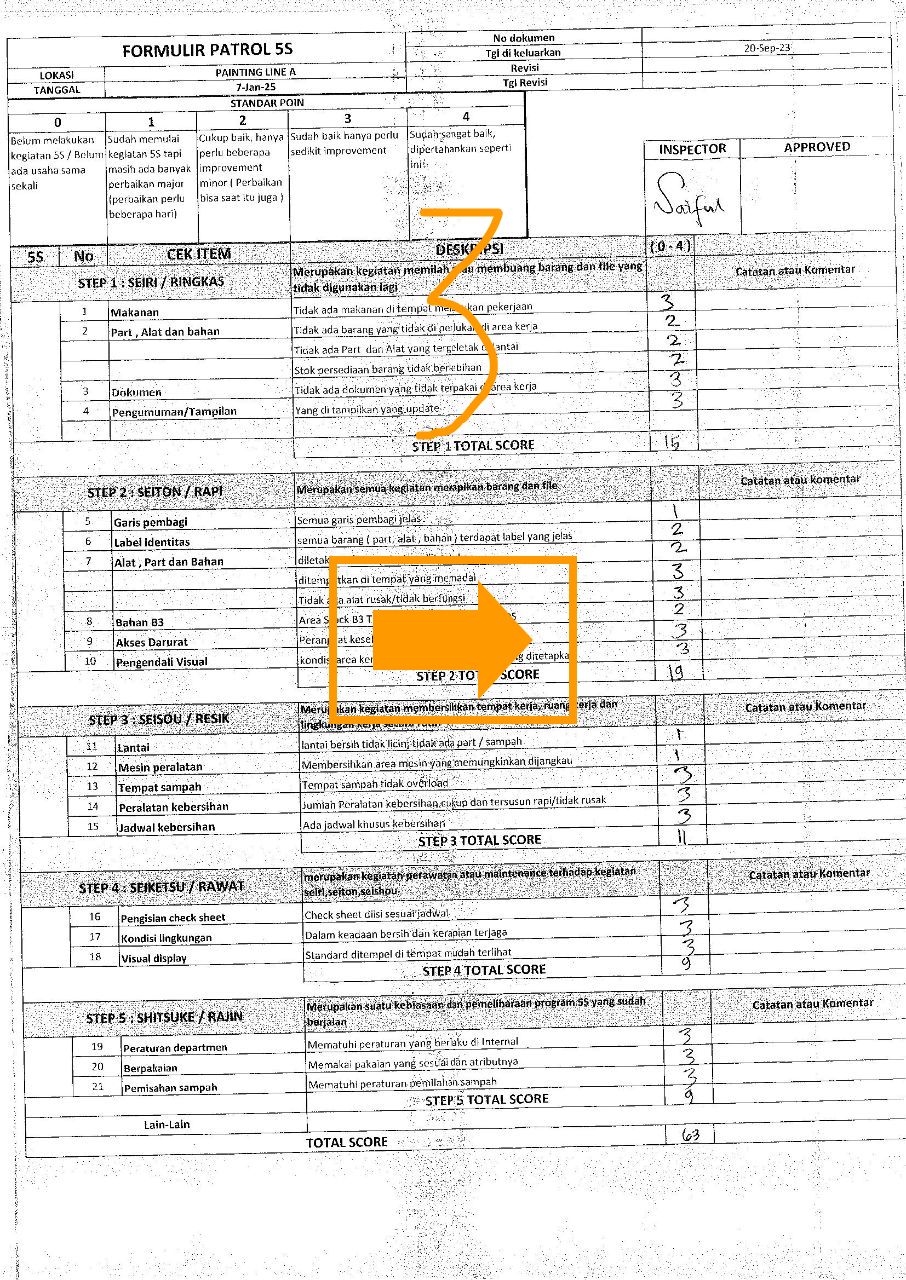 FORMULIR PATROL 5S
No dokumen
Tgl di keluarkan 20-Sep-23
Revisi
Tgl Revisi
LOKASI PAINTING LINE A
TANGGAL 7-Jan-25
STANDAR POIN
0 1 2 3 4
Belum melakukan kegiatan 5S / Belum ada usaha sama sekali
Sudah memulai kegiatan 5S tapi masih ada banyak perbaikan major (perbaikan perlu beberapa hari)
Cukup baik, hanya perlu beberapa improvement minor ( Perbaikan bisa saat itu juga )
Sudah baik hanya perlu sedikit improvement
Sudah sangat baik, dipertahankan seperti ini
INSPECTOR APPROVED
Saiful
3
5S No CEK ITEM DESKRIPSI (0 - 4)
STEP 1 : SEIRI / RINGKAS Merupakan kegiatan memilah atau membuang barang dan file yang tidak digunakan lagi Catatan atau Komentar
1 Makanan Tidak ada makanan di tempat melakukan pekerjaan 3
2 Part , Alat dan bahan Tidak ada barang yang tidak di perlukan di area kerja 2
Tidak ada Part dan Alat yang tergeletak di lantai 2
Stok persediaan barang tidak berlebihan 2
3 Dokumen Tidak ada dokumen yang tidak terpakai di area kerja 3
4 Pengumuman/Tampilan Yang di tampilkan yang update 3
STEP 1 TOTAL SCORE 15
STEP 2 : SEITON / RAPI Merupakan semua kegiatan merapikan barang dan file Catatan atau komentar
5 Garis pembagi Semua garis pembagi jelas 1
6 Label Identitas semua barang ( part, alat , bahan ) terdapat label yang jelas 2
7 Alat , Part dan Bahan 2
ditempatkan di tempat yang memadai 3
Tidak ada alat rusak/tidak berfungsi 3
8 Bahan B3 Area Stock B3 2
9 Akses Darurat Perangkat 3
10 Pengendali Visual kondisi area ditetapka 3
STEP 2 TOTAL SCORE 19
STEP 3 : SEISOU / RESIK Merupakan kegiatan membersihkan tempat kerja, ruang kerja dan lingkungan kerja secara rutin Catatan atau Komentar
11 Lantai lantai bersih tidak licin, tidak ada part / sampah 1
12 Mesin peralatan Membersihkan area mesin yang memungkinkan dijangkau 1
13 Tempat sampah Tempat sampah tidak overload 3
14 Peralatan kebersihan Jumlah Peralatan kebersihan cukup dan tersusun rapi/tidak rusak 3
15 Jadwal kebersihan Ada jadwal khusus kebersihan 3
STEP 3 TOTAL SCORE 11
STEP 4 : SEIKETSU / RAWAT merupakan kegiatan perawatan atau maintenance terhadap kegiatan seiri,seiton,seishou Catatan atau Komentar
16 Pengisian check sheet Check sheet diisi sesuai jadwal 3
17 Kondisi lingkungan Dalam keadaan bersih dan kerapian terjaga 3
18 Visual display Standard ditempel di tempat mudah terlihat 3
STEP 4 TOTAL SCORE 9
STEP 5 : SHITSUKE / RAJIN Merupakan suatu kebiasaan dan pemeliharaan program 5S yang sudah berjalan Catatan atau Komentar
19 Peraturan departmen Mematuhi peraturan yang berlaku di Internal 3
20 Berpakaian Memakai pakaian yang sesuai dan atributnya 3
21 Pemisahan sampah Mematuhi peraturan pemilahan sampah 3
STEP 5 TOTAL SCORE 9
Lain-Lain
TOTAL SCORE 63